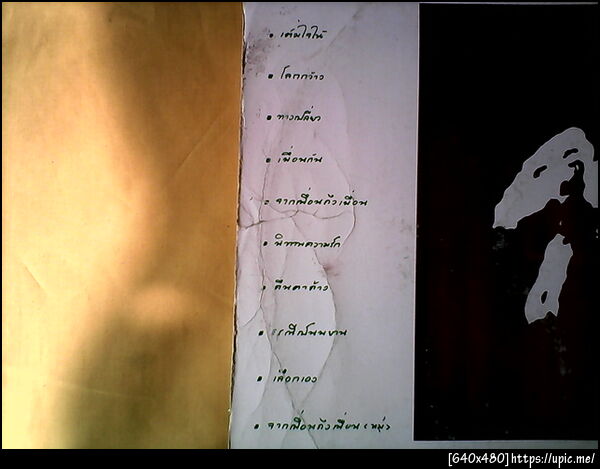 • เต็มใจให้
• โลกกว้าง
• ทางเปลี่ยว
• เพื่อนกัน
• จากเพื่อนถึงเพื่อน
• นิทานความรัก
• คืนฟ้าค้าง
• เลือกเอง
• จากเพื่อนถึงเพื่อน (หมู่)
[640x480]https://upic.me/